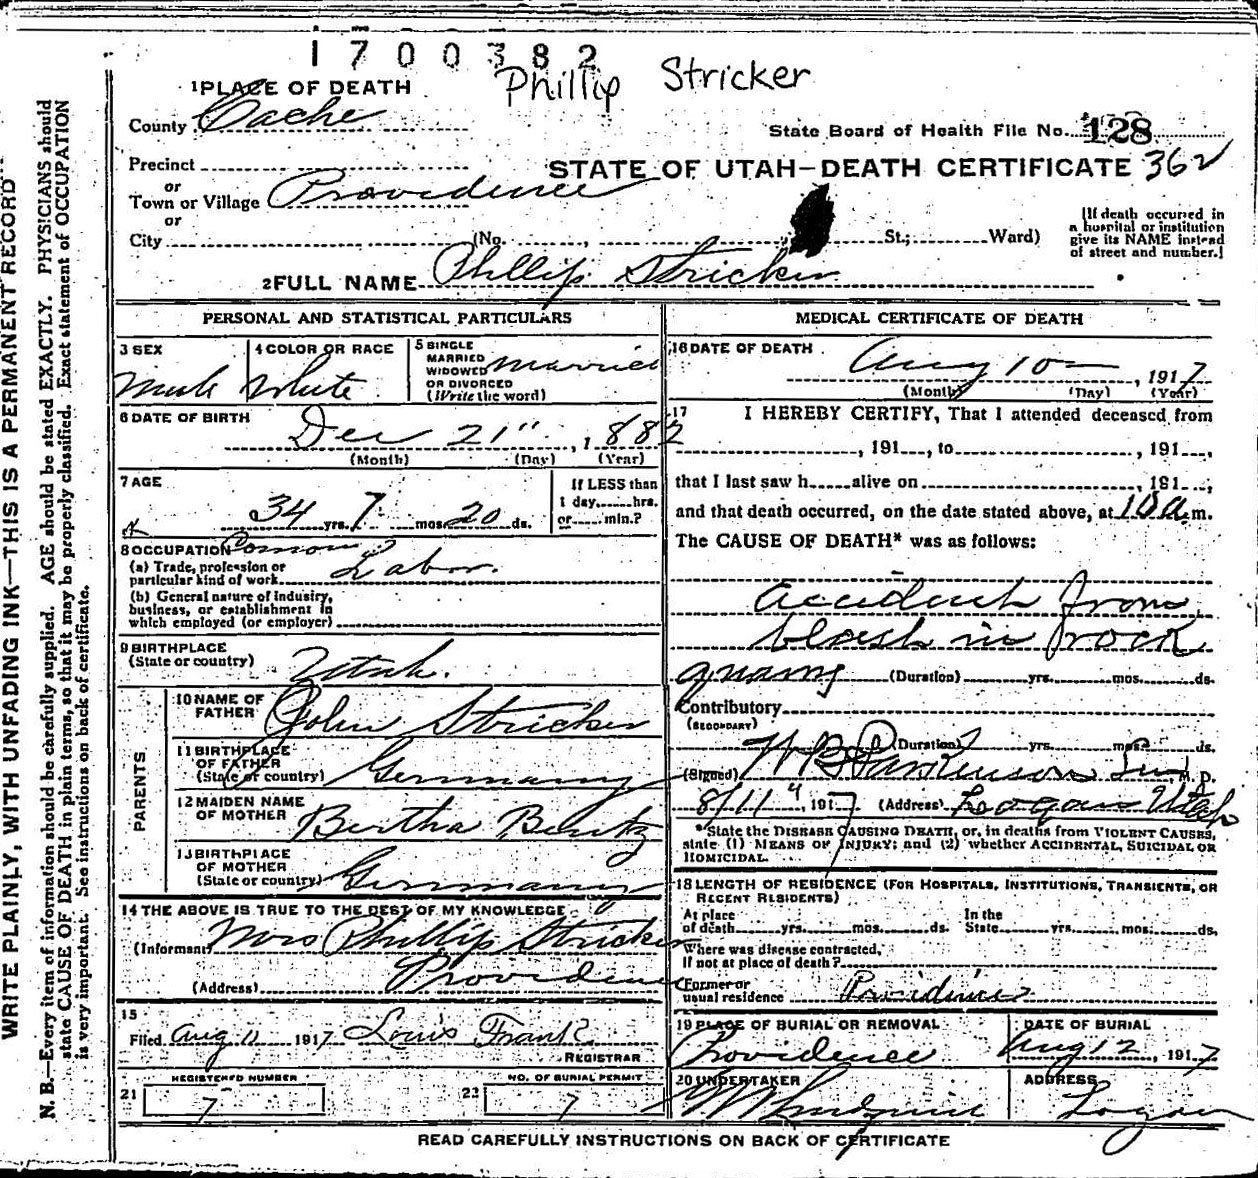 1700382
Phillip Stricker
1 PLACE OF DEATH
County Cache
State Board of Health File No. 128
Precinct
STATE OF UTAH—DEATH CERTIFICATE 362
or
Town or Village Providence
or
City (No. , St.; Ward)
[If death occurred in
a hospital or institution
give its NAME instead
of street and number.]
2 FULL NAME Phillip Stricker
PERSONAL AND STATISTICAL PARTICULARS
3 SEX
Male
4 COLOR OR RACE
White
5 SINGLE
MARRIED
WIDOWED
OR DIVORCED
(Write the word)
married
6 DATE OF BIRTH
Dec 21" , 1882
(Month) (Day) (Year)
7 AGE
34 yrs. 7 mos. 20 ds.
If LESS than
1 day, hrs.
or min.?
8 OCCUPATION Comon
(a) Trade, profession or
particular kind of work Labor.
(b) General nature of industry,
business, or establishment in
which employed (or employer)
9 BIRTHPLACE
(State or country) Utah.
PARENTS
10 NAME OF
FATHER John Stricker
11 BIRTHPLACE
OF FATHER
(State or country) Germany
12 MAIDEN NAME
OF MOTHER Bertha Bentz
13 BIRTHPLACE
OF MOTHER
(State or country) Germany
14 THE ABOVE IS TRUE TO THE BEST OF MY KNOWLEDGE
(Informant) Mrs Phillip Stricker
(Address) Providence
15
Filed Aug 11 1917 Louis Frank
REGISTRAR
21 REGISTERED NUMBER
7
22 NO. OF BURIAL PERMIT
7
MEDICAL CERTIFICATE OF DEATH
16 DATE OF DEATH
Aug 10 , 1917
(Month) (Day) (Year)
17 I HEREBY CERTIFY, That I attended deceased from
, 191 , to , 191 ,
that I last saw h alive on , 191 ;
and that death occurred, on the date stated above, at 10 a m.
The CAUSE OF DEATH* was as follows:
accident from
blast in rock
(Duration) yrs. mos. ds.
Contributory
(SECONDARY)
(Duration) yrs. mos. ds.
(Signed) W B Parkinson , M. D.
8/11", 1917 (Address) Logan Utah
*State the DISEASE CAUSING DEATH, or, in deaths from VIOLENT CAUSES,
state (1) MEANS OF INJURY; and (2) whether ACCIDENTAL, SUICIDAL OR
HOMICIDAL.
18 LENGTH OF RESIDENCE (FOR HOSPITALS, INSTITUTIONS, TRANSIENTS, OR
RECENT RESIDENTS)
At place
of death yrs. mos. ds.
In the
State yrs. mos. ds.
Where was disease contracted,
If not at place of death?
Former or
usual residence Providence
19 PLACE OF BURIAL OR REMOVAL
Providence
DATE OF BURIAL
Aug 12, 1917
20 UNDERTAKER
ADDRESS
Logan
READ CAREFULLY INSTRUCTIONS ON BACK OF CERTIFICATE
WRITE PLAINLY, WITH UNFADING INK—THIS IS A PERMANENT RECORD
N. B.—Every item of information should be carefully supplied. AGE should be stated EXACTLY. PHYSICIANS should
state CAUSE OF DEATH in plain terms, so that it may be properly classified. Exact statement of OCCUPATION
is very important. See instructions on back of certificate.